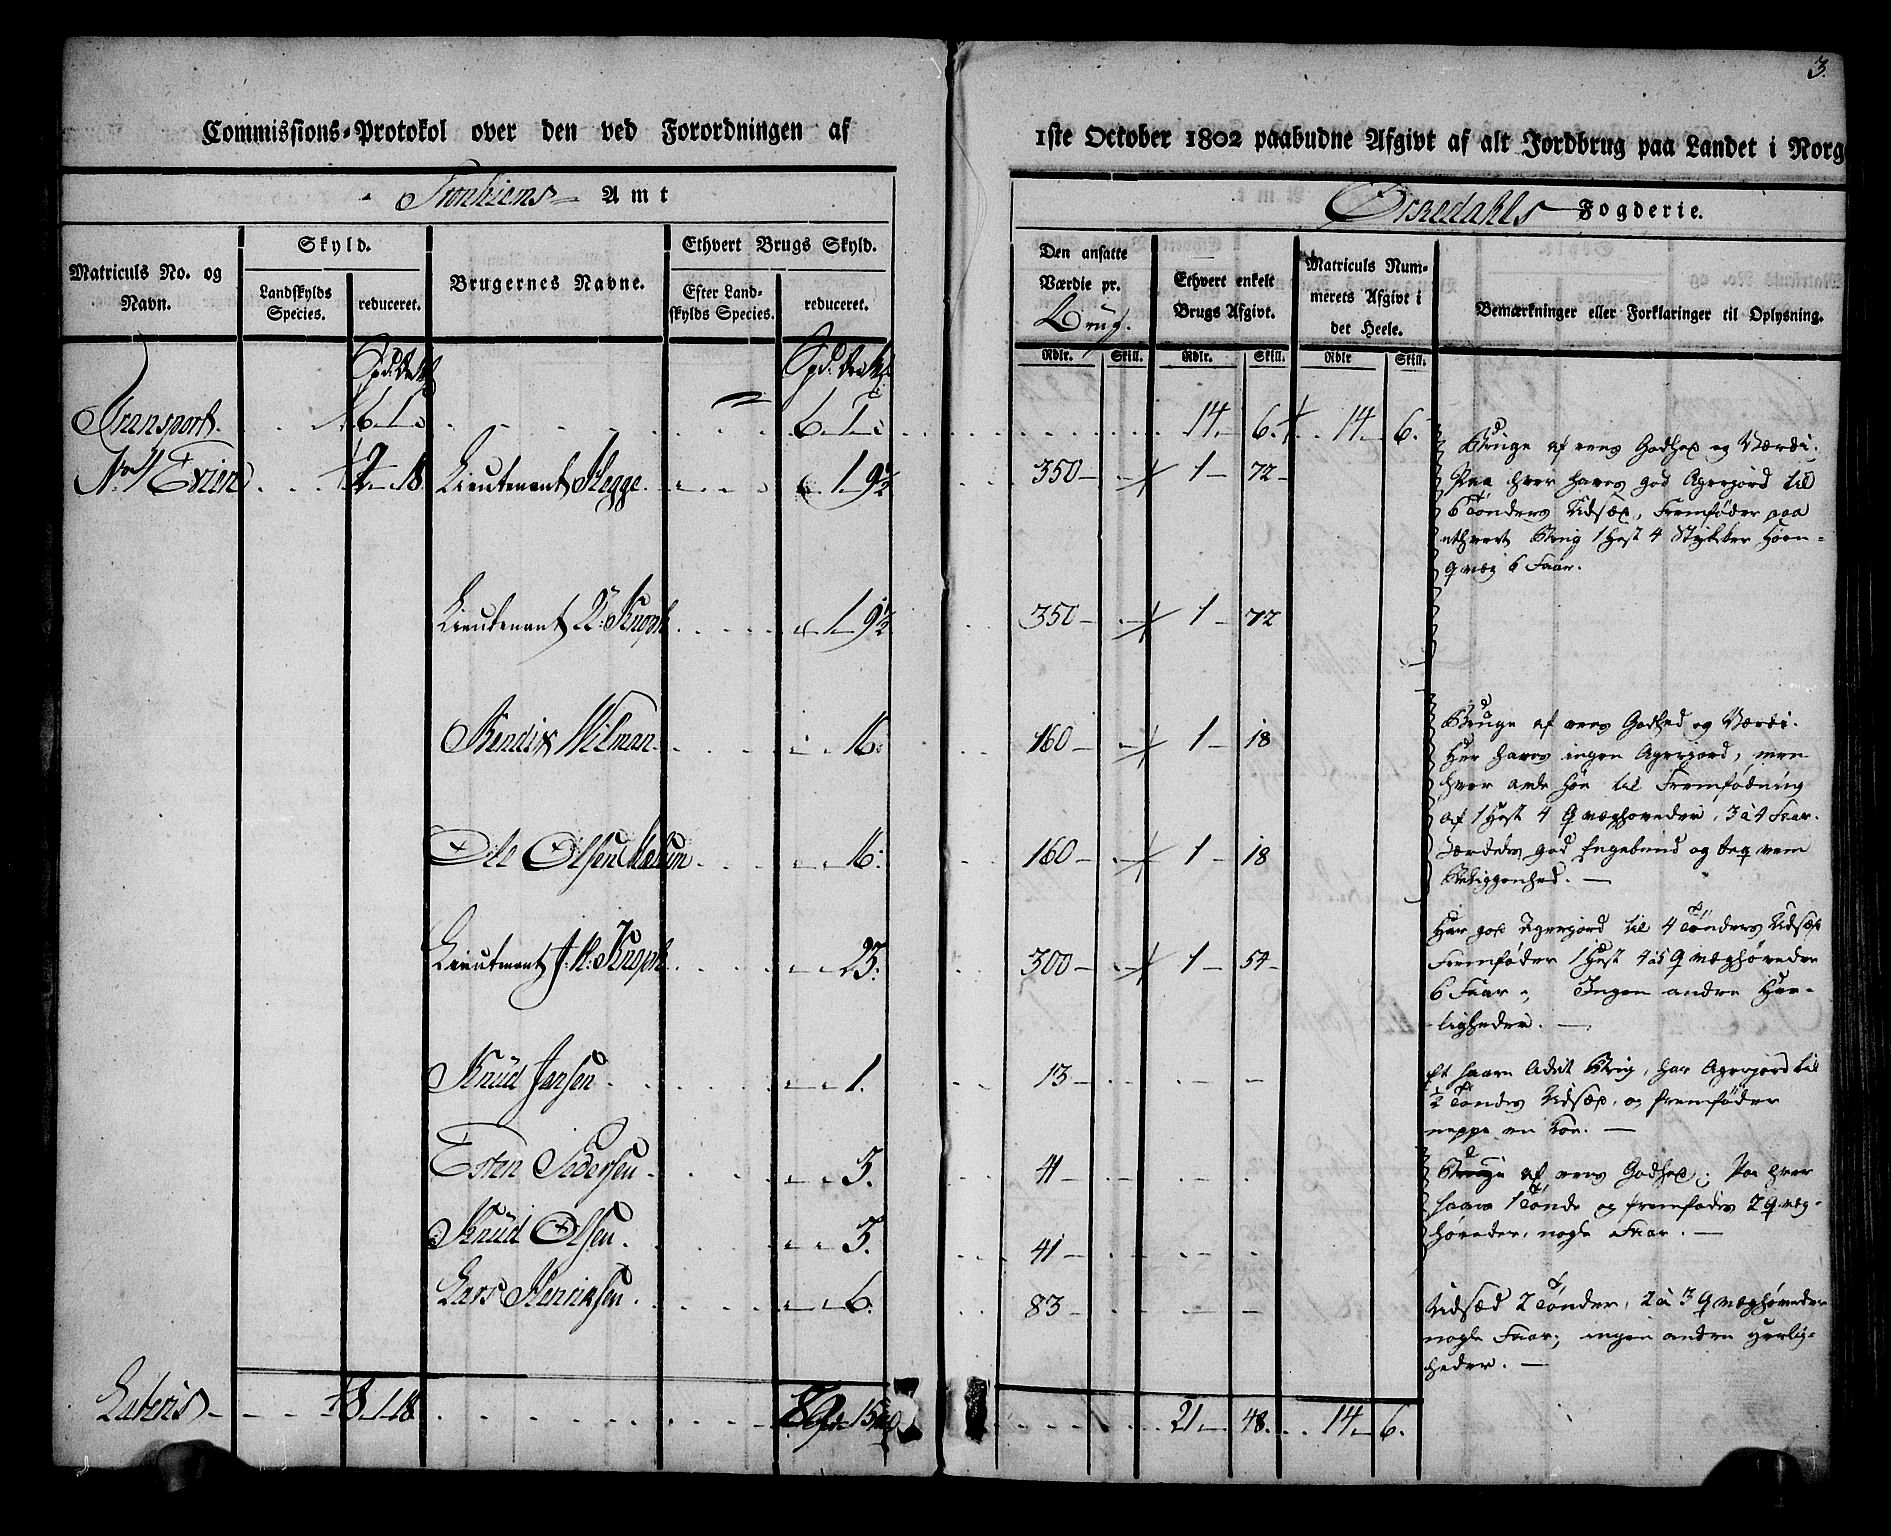 3.
Commissions-Protokol over den ved Forordningen af
1ste October 1802 paabudne Afgivt af alt Jordbrug paa Landet i Norg
Tronhiems Amt
Orkedahls Fogderie.
Matriculs No. og Navn.
Skyld.
Landskylds Species.
reduceret.
Brugernes Navne.
Ethvert Brugs Skyld.
Efter Landskylds Species.
reduceret.
Den ansatte Værdie pr. Brug.
Ethvert enkelt Brugs Afgivt.
Matriculs Nummerets Afgivt i det Heele.
Bemærkninger eller Forklaringer til Oplysning.
Rdlr. Skill. Rdlr. Skill. Rdlr Skill.
Transport 6. 1. 6. 1. 14 6. 14 6.
Evien 2 18. Lieutenant Hegge 1 9½ 350 1 72
Bruge af eens Godhed og Værdi.
Paa hver haves god Agerjord til
6 Tønders Udsæd, Fremføder paa
ethvert Brug 1 Hest 4 Stykker Horn-
qvæg 6 Faar.
Lieutenant Knoph 1 9½ 350 1 72
Bendix Wilman 16. 160 1 18
Bruge af eens Godhed og Værdi.
Her haves ingen Agerjord, men
hver avle Høe til Fremfødning
af 1 Hest 4 Qvæghoveder, 3 à 4 Faar.
Særdeles god Engebund og beqvem
Beliggenhed.
Ole Olsen 16. 160 1 18
Lieutenant J. H. Knoph 23. 300 1 54
Her god Agerjord til 4 Tønders Udsæd
Fremføder 1 Hest 4 à 5 Qvæghøveder
6 Faar; Ingen andre Her-
ligheder.
Knud Jensen 1. 13
Et saare lidet Brug, har Agerjord til
½ Tøndes Udsæd, og fremføder
neppe en Koe.
Esten Pedersen 3. 41
Bruge af eens Godhed; Paa hver
saaes 1 Tønde og fremfødes 2 Qvæg-
høveder, nogle Faar.
Knud Olsen 3. 41
Lars Henriksen 6. 83
Udsæd 2 Tønder, 2 à 3 Qvæghøveder
nogle Faar; ingen andre Herlig-
heder.
Lateris 8. 1. 18. 21 48. 14 6.